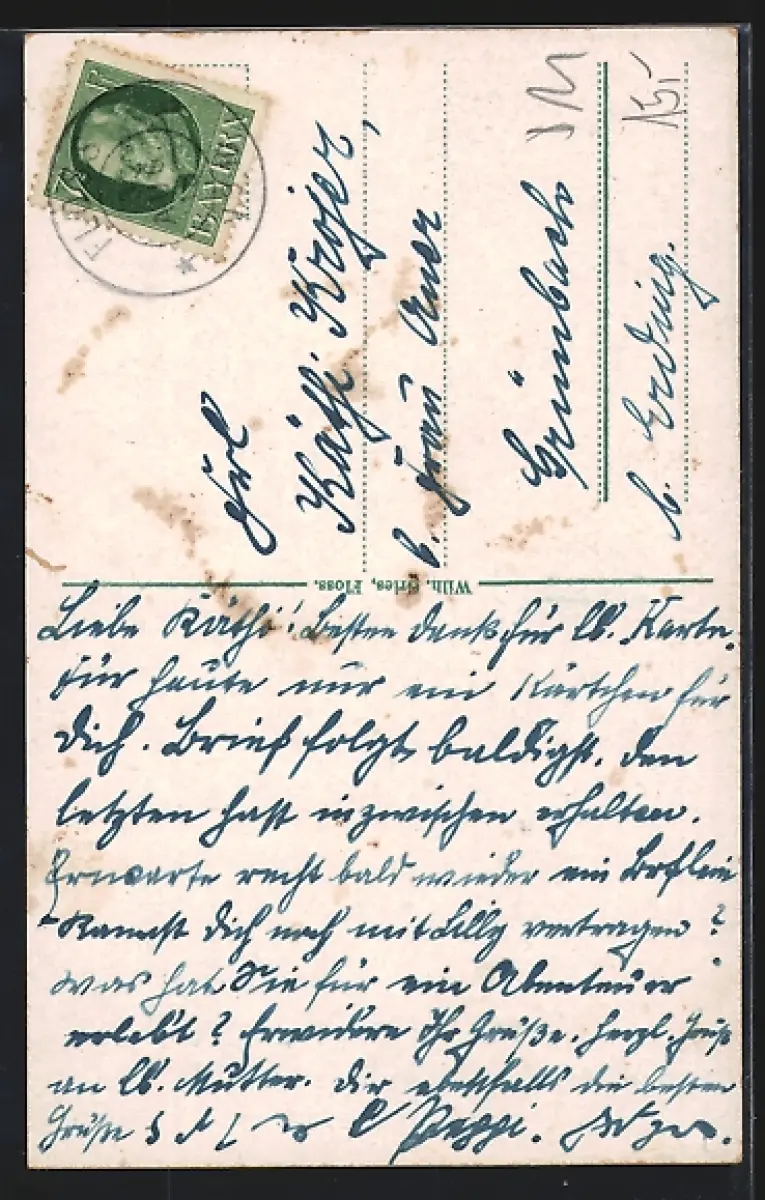 7½ Pf
BAYERN
FLOSS
Frl
Käthi Krojer,
b. Frau Auer
Grünbach
b. Erding.
Wilh. Gries, Floss.
Liebe Käthi! Besten Dank für lb. Karte.
Für heute nur ein Kärtchen für
Dich. Brief folgt baldigst. Den
letzten hast inzwischen erhalten.
Erwarte recht bald wieder ein Brflein
Kannst Dich noch mit Lilly vertragen?
Was hat Sie für ein Abenteuer
erlebt? Erwidere Ihr Grüße. Herzl. Grüße
an lb. Mutter. Dir ebenfalls die besten
Grüße Peppi.